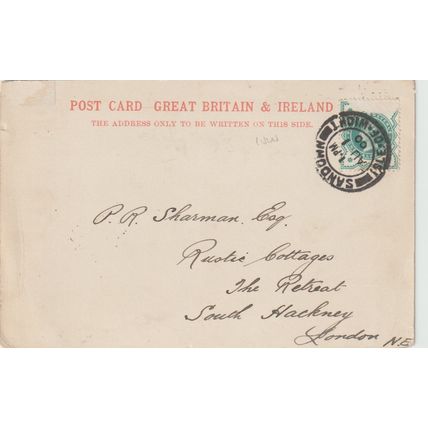 POST CARD GREAT BRITAIN & IRELAND
THE ADDRESS ONLY TO BE WRITTEN ON THIS SIDE.
SANDOWN
ISLE-OF-WIGHT
PM
00
P. R. Sharman. Esq.
Rustic Cottages
The Retreat
South Hackney
London N.E